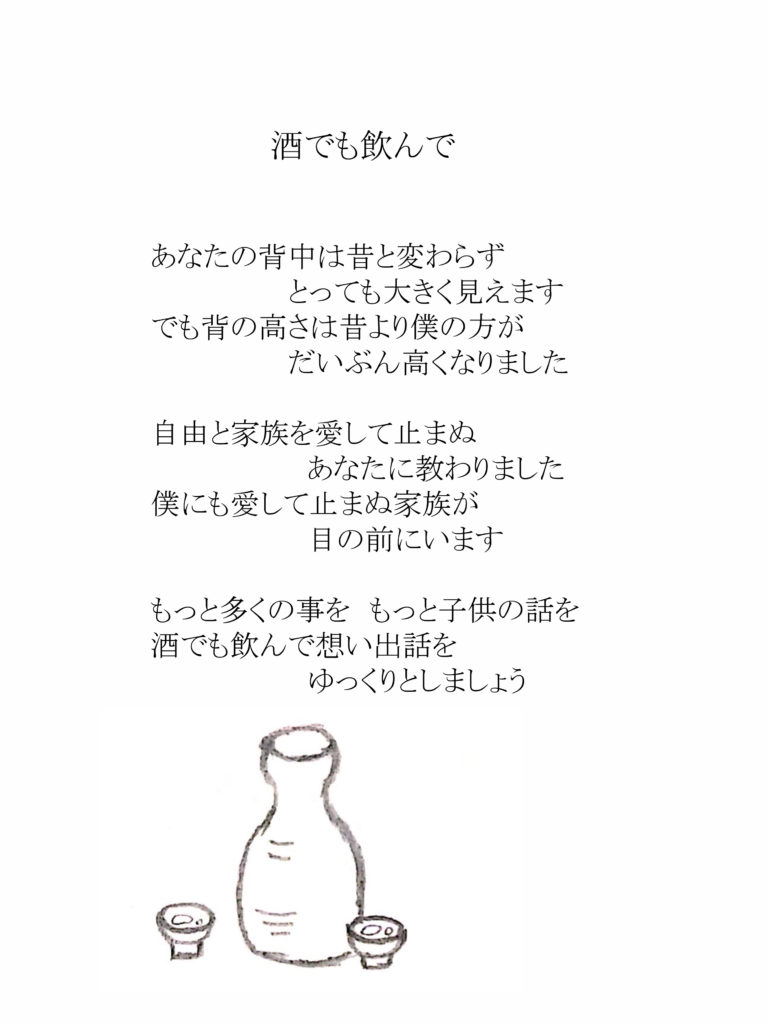 酒でも飲んで
あなたの背中は昔と変わらず
とっても大きく見えます
でも背の高さは昔より僕の方が
だいぶん高くなりました
自由と家族を愛して止まぬ
あなたに教わりました
僕にも愛して止まぬ家族が
目の前にいます
もっと多くの事を　もっと子供の話を
酒でも飲んで想い出話を
ゆっくりとしましょう